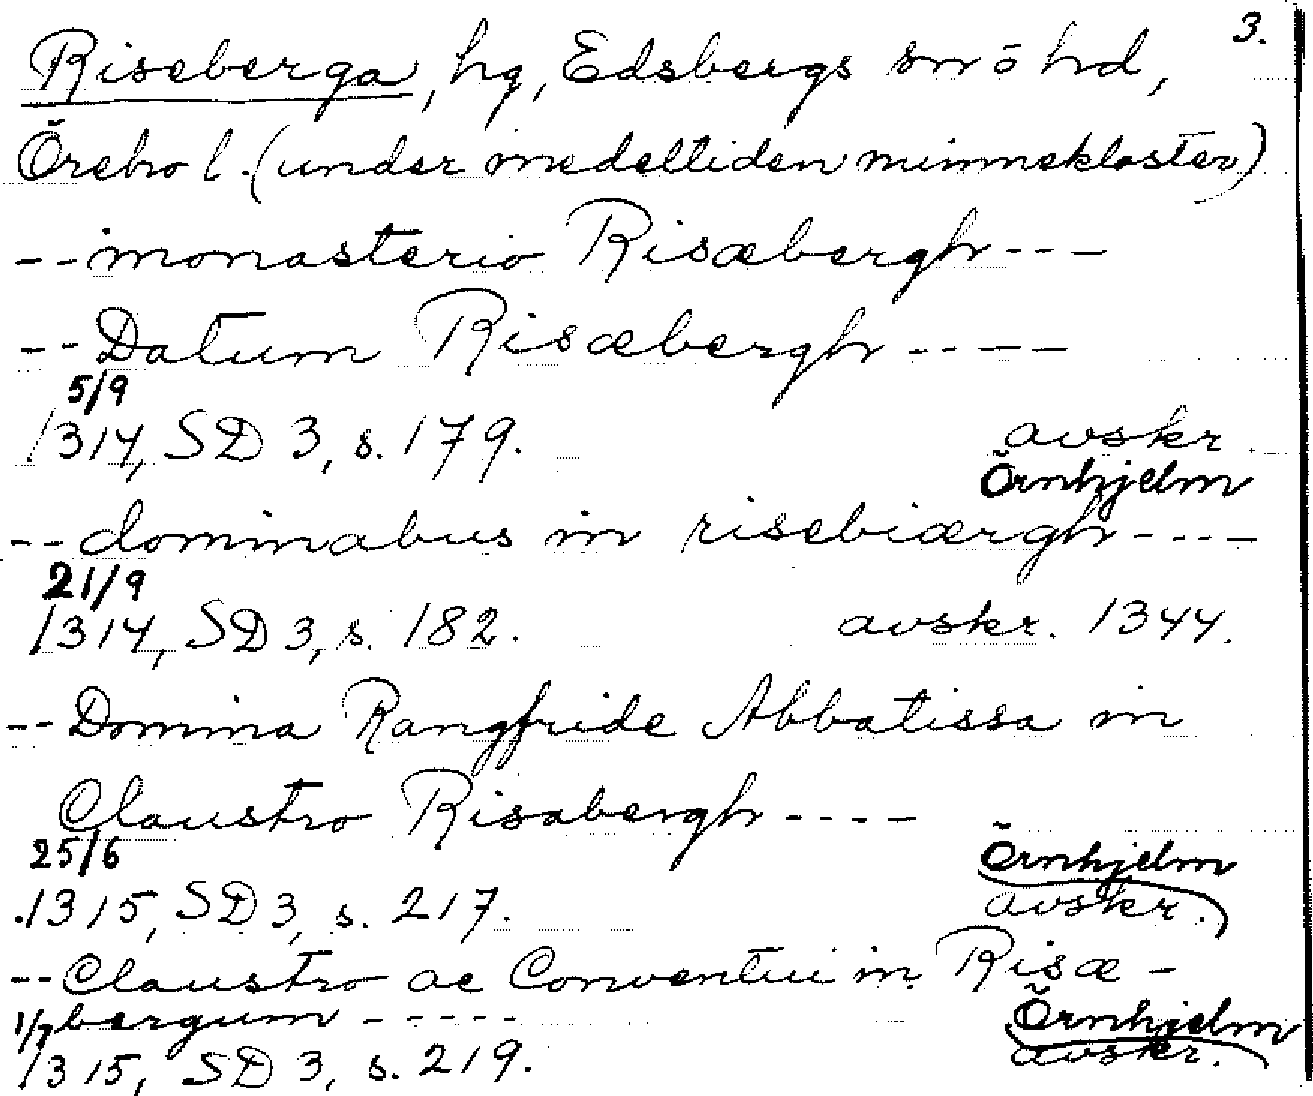 3.
Riseberga, hg, Edsbergs sn o hd,
Örebro l. (under medeltiden nunnekloster)
-- monasterio Risæbergh ---
-- Datum Risæbergh -----
5/9
1314, SD 3, s. 179. avskr
Örnhjelm
-- dominabus in risebiærgh ----
21/9
1314, SD 3, s. 182. avskr. 1344.
-- Domina Rangfride Abbatissa in
Claustro Risabergh ----
25/6 Örnhjelm
1315, SD 3, s. 217. avskr.
-- Claustro ac Conventui in Risæ-
bergum ----- Örnhjelm
1/7
1315, SD 3, s. 219. avskr.